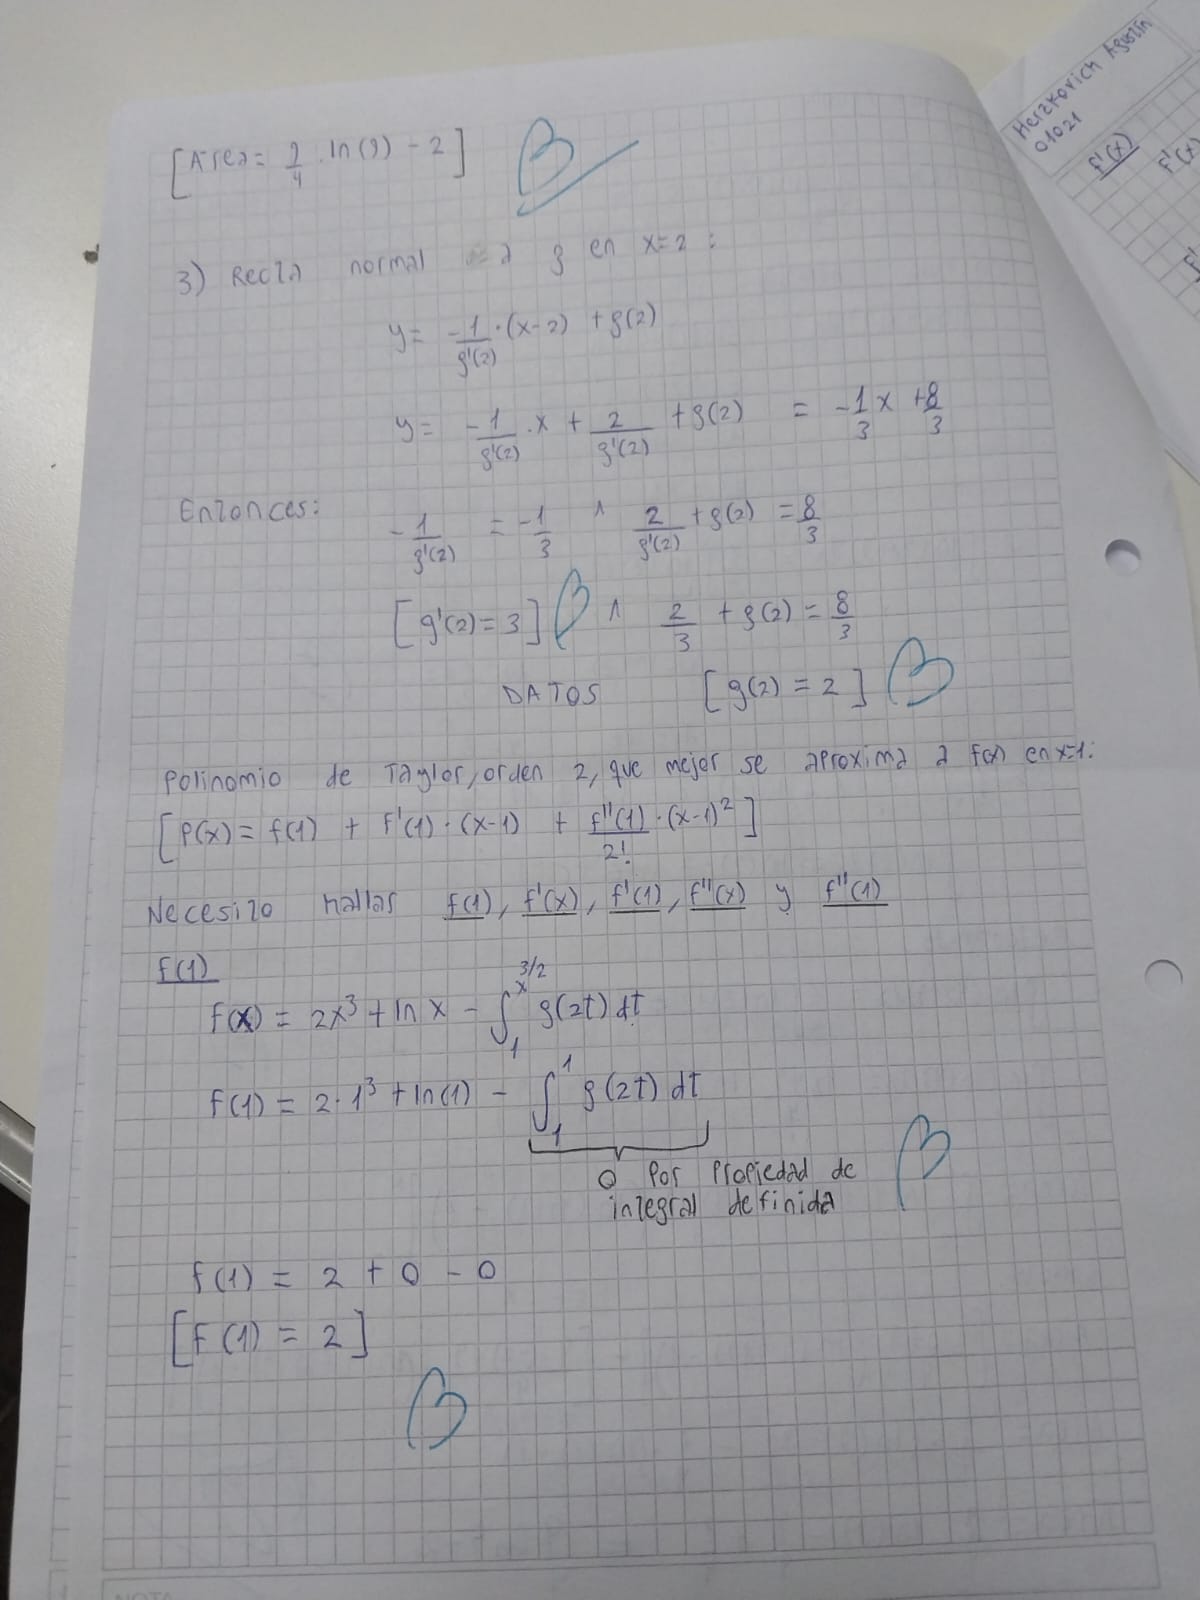 [Area = 9/4 . ln(9) - 2] B
Herzkovich Agustín
01021
f'(x)
f'(x)
3) Recta normal a g en x=2:
y= -1/g'(2) . (x-2) + g(2)
y= -1/g'(2) . x + 2/g'(2) + g(2) = -1/3 x + 8/3
Entonces: -1/g'(2) = -1/3 ∧ 2/g'(2) + g(2) = 8/3
[g'(2) = 3] B ∧ 2/3 + g(2) = 8/3
DATOS [g(2) = 2] B
Polinomio de Taylor, orden 2, que mejor se aproxima a f(x) en x=1:
[P(x) = f(1) + f'(1) . (x-1) + f''(1)/2! . (x-1)²]
Necesito hallar f(1), f'(x), f'(1), f''(x) y f''(1)
f(1)
f(x) = 2x³ + ln x - ∫₁^(x^(3/2)) g(2t) dt
f(1) = 2.1³ + ln(1) - ∫₁¹ g(2t) dt
0 por propiedad de B
integral definida
f(1) = 2 + 0 - 0
[f(1) = 2]
B
NOTA